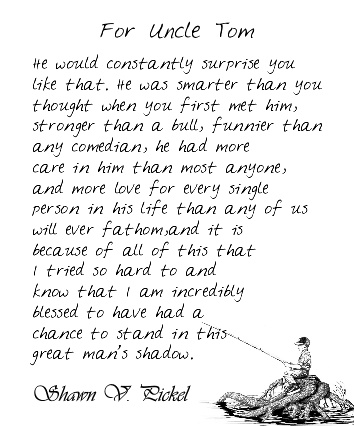 For Uncle Tom
He would constantly surprise you
like that. He was smarter than you
thought when you first met him,
stronger than a bull, funnier than
any comedian, he had more
care in him than most anyone,
and more love for every single
person in his life than any of us
will ever fathom,and it is
because of all of this that
I tried so hard to and
know that I am incredibly
blessed to have had a
chance to stand in this
great man's shadow.
Shawn V. Pickel